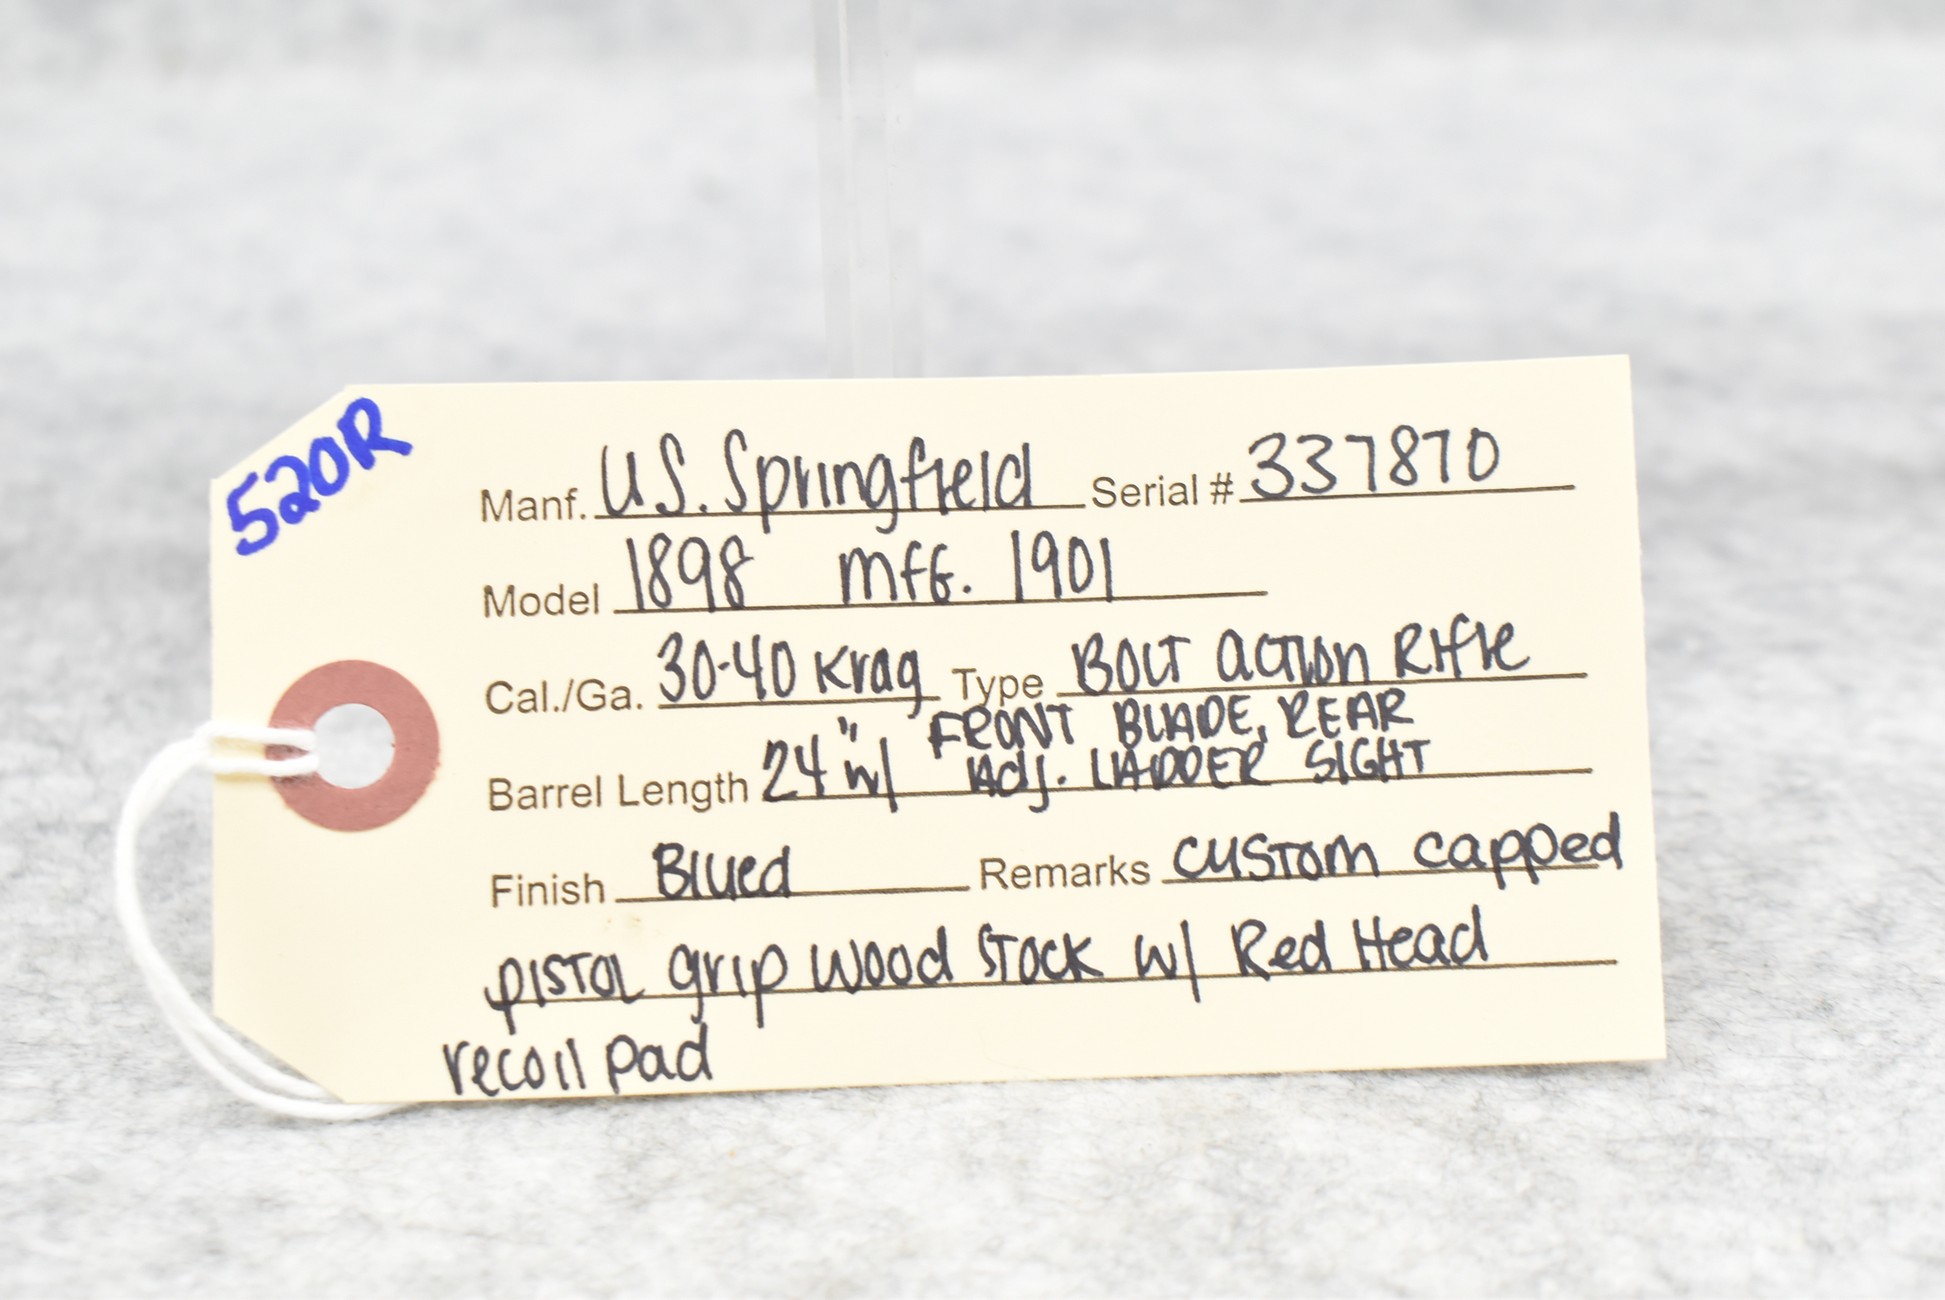 520R
Manf. U.S. Springfield Serial # 337870
Model 1898 mfg. 1901
Cal./Ga. 30-40 Krag Type Bolt action Rifle
Barrel Length 24" w/ FRONT BLADE, REAR
Adj. LADDER SIGHT
Finish Blued Remarks custom capped
pistol grip wood stock w/ Red Head
recoil pad